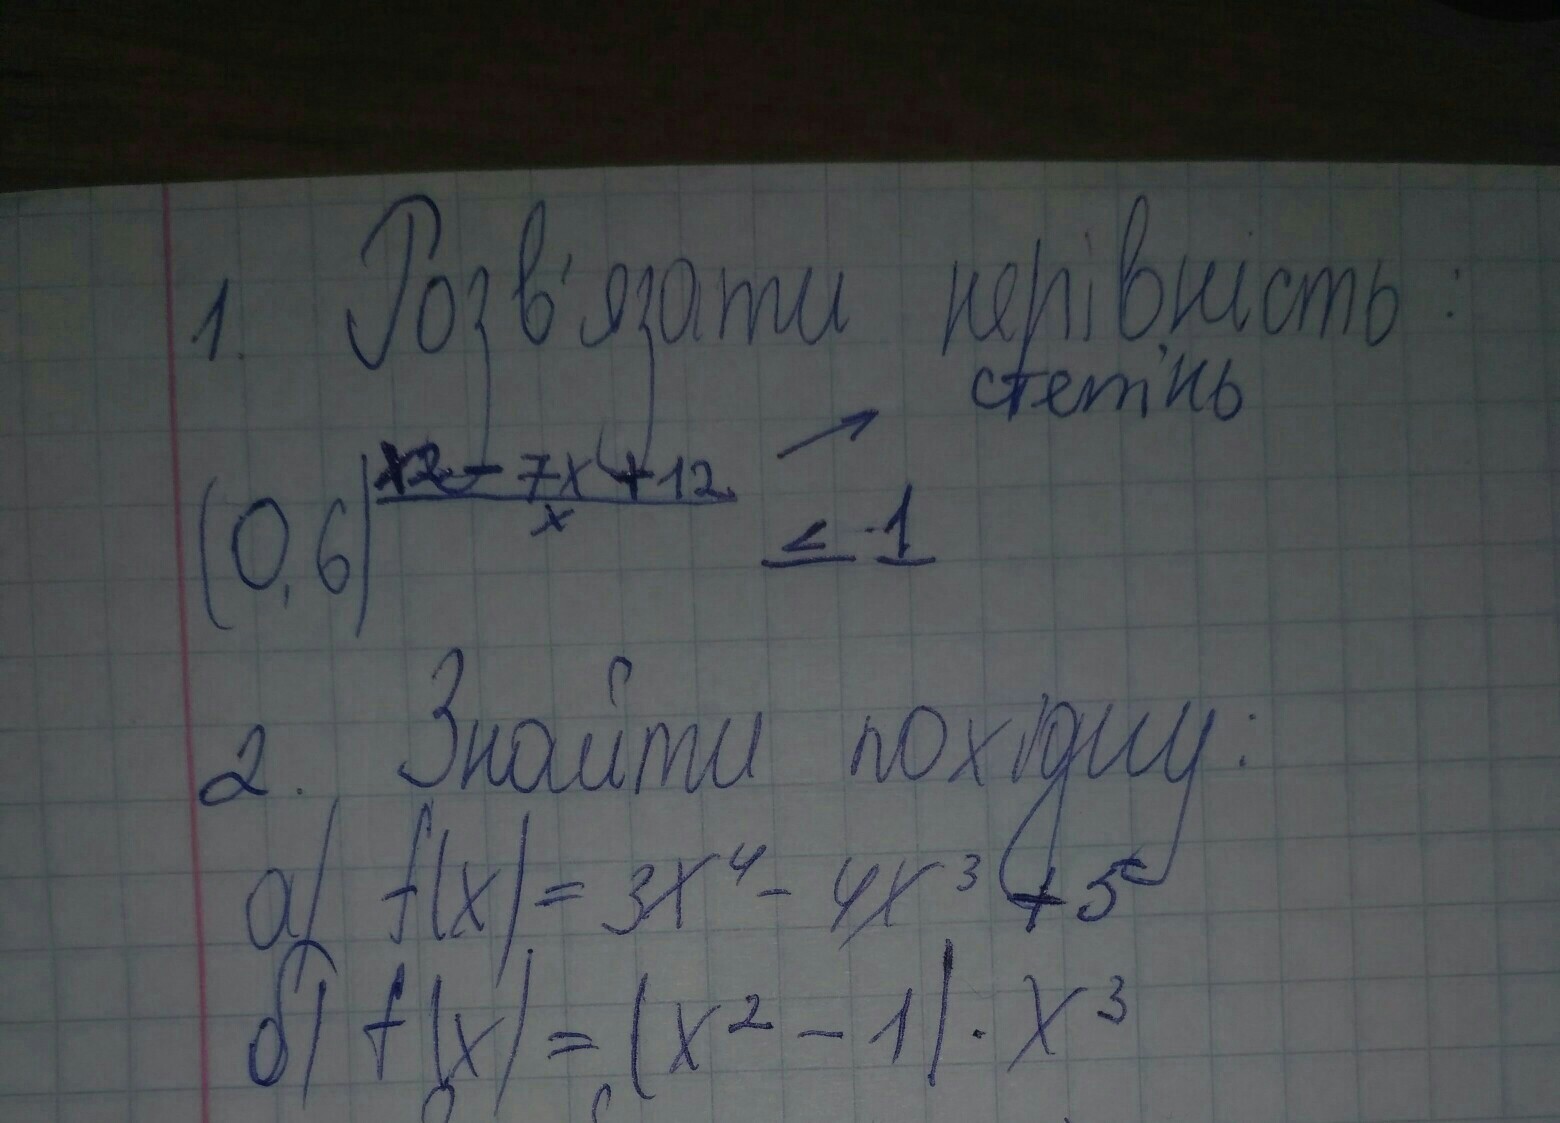 1. Розв'язати нерівність:
степінь
(0,6) x2 - 7x + 12 / x ≤ 1
2. Знайти похідну:
а) f(x) = 3x⁴ - 4x³ + 5
б) f(x) = (x² - 1) · x³